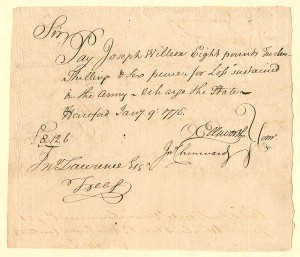 Sir
Pay Joseph Willcox Eight pounds Twelve
Shillings & Six pence for Loss sustained
in the Army & Charge the State
Hartford Jany 9th 1778
£8.12.6
OEllsworth
Jn Chenward
Com
Jno Lawrence Esqr
Treasr